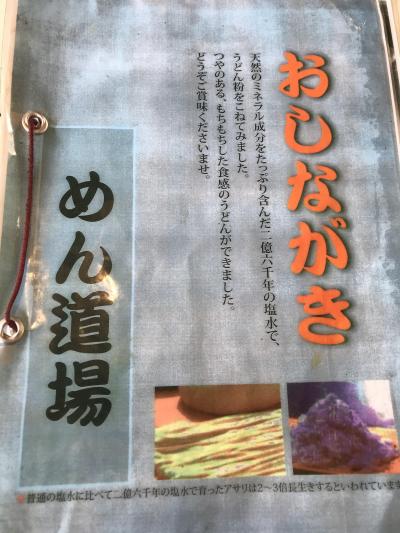 おしながき
天然のミネラル成分をたっぷり含んだ二億六千年の塩水で、
うどん粉をこねてみました。
つやのある、もちもちした食感のうどんができました。
どうぞご賞味くださいませ。
めん道場
※普通の塩水に比べて二億六千年の塩水で育ったアサリは2～3倍長生きするといわれています